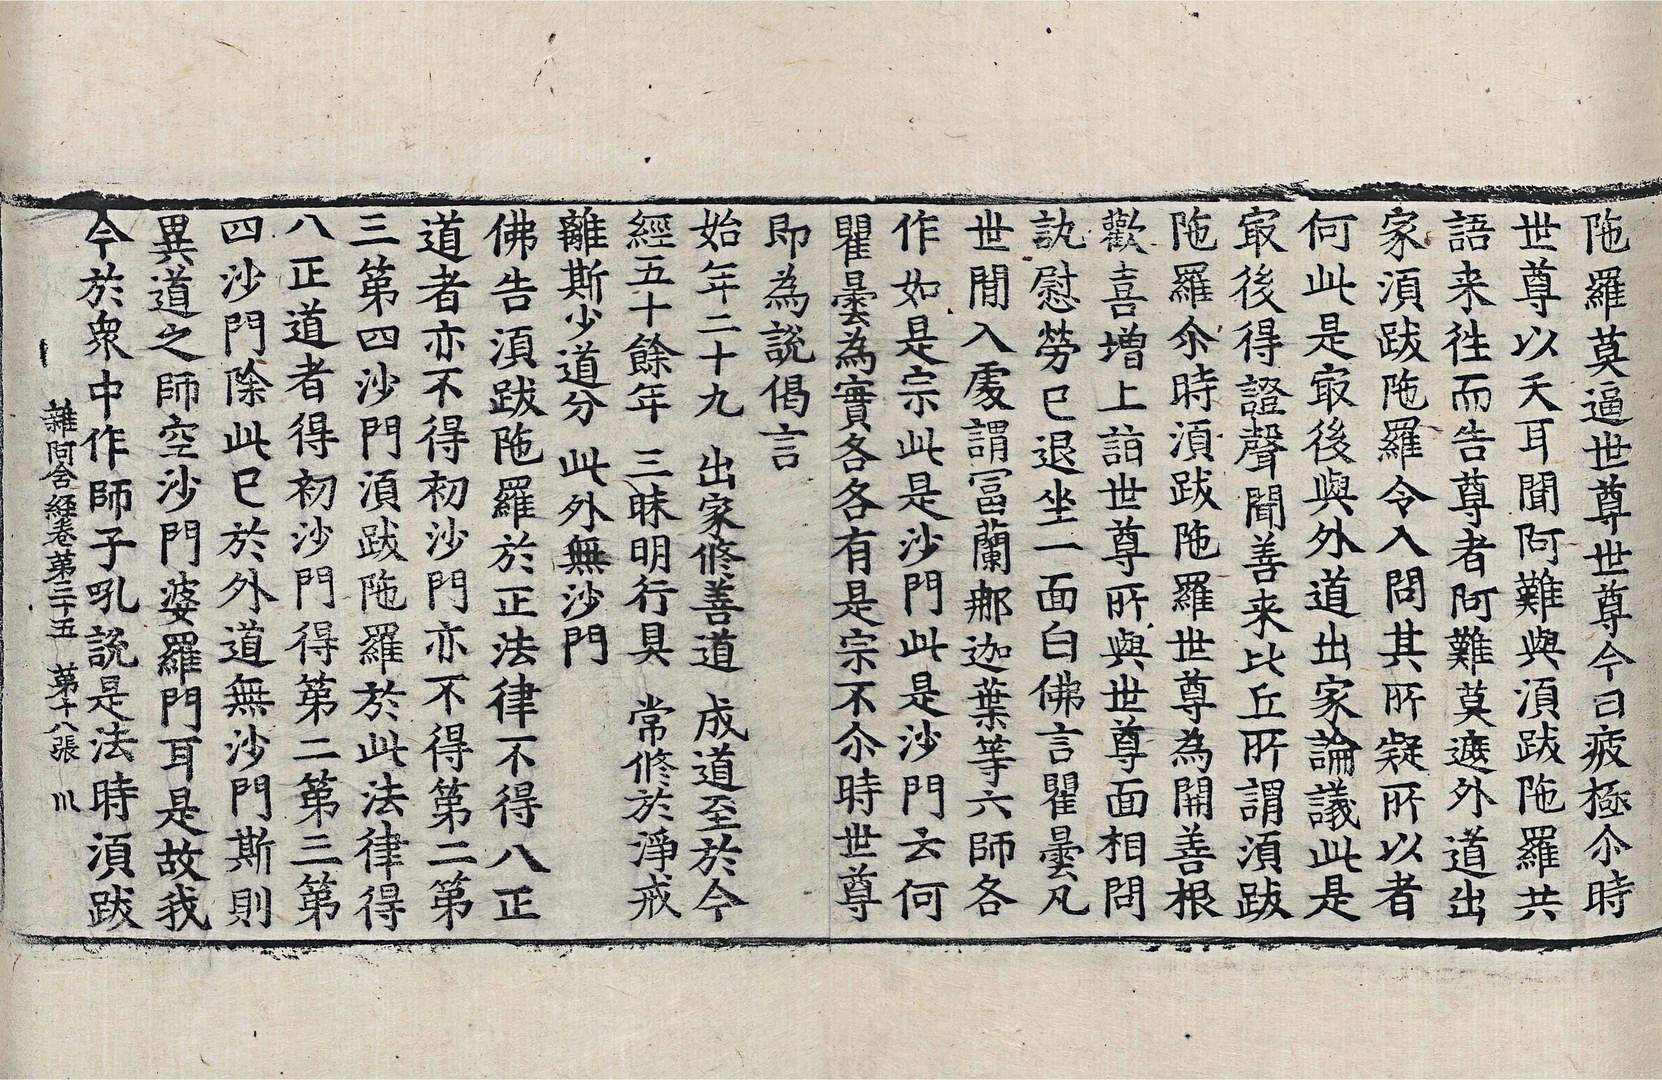 陁羅莫逼世尊世尊今日疲極尒時
世尊以天耳聞阿難與湏跋陁羅共
語来徃而告尊者阿難莫遮外道出
家湏跋陁羅令入問其所疑所以者
何此是㝡後與外道出家論議此是
㝡後得證聲聞善来比丘所謂湏跋
陁羅尒時湏跋陁羅世尊為開善根
歡喜增上詣世尊所與世尊面相問
訊慰勞已退坐一面白佛言瞿曇凡
世間入處謂冨蘭那迦葉等六師各
作如是宗此是沙門此是沙門云何
瞿曇為實各各有是宗不尒時世尊
即為說偈言
始年二十九 出家修善道 成道至於今
經五十餘年 三昧明行具 常修於淨戒
離斯少道分 此外無沙門
佛告湏跋陁羅於正法律不得八正
道者亦不得初沙門亦不得第二第
三第四沙門湏跋陁羅於此法律得
八正道者得初沙門得第二第三第
四沙門除此已於外道無沙門斯則
異道之師空沙門婆羅門耳是故我
今於衆中作師子吼說是法時湏跋
雜阿含經卷第三十五 第十八張 川